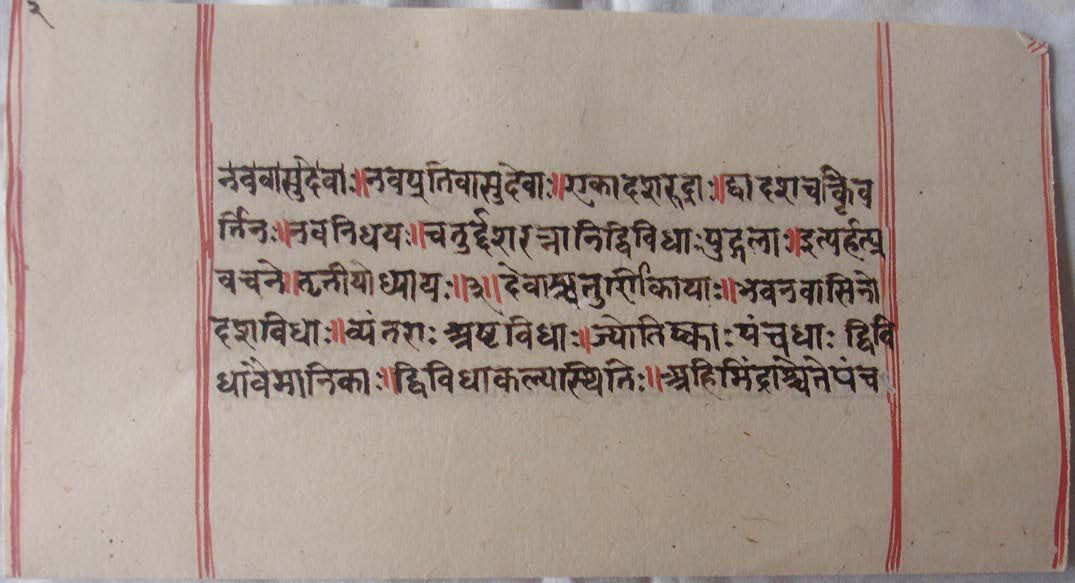 २
नववासुदेवाः॥नवप्रतिवासुदेवाः॥एकादशरुद्राः॥द्वादशचक्रिव
र्त्तिनः॥नवनिधयः॥चतुर्द्दशरत्नानिद्विविधाःपुद्गलाः॥इत्यर्हत्प्र
वचने॥तृतीयोध्यायः॥३॥देवाश्चतुर्णिकायाः॥भवनवासिनो
दशविधाः॥व्यंतराः अष्टविधाः॥ज्योतिष्काः पंचधाः द्विवि
धावैमानिकाः॥द्विविधाकल्पास्थितिः॥अहिमिंद्राश्चेतेपंच